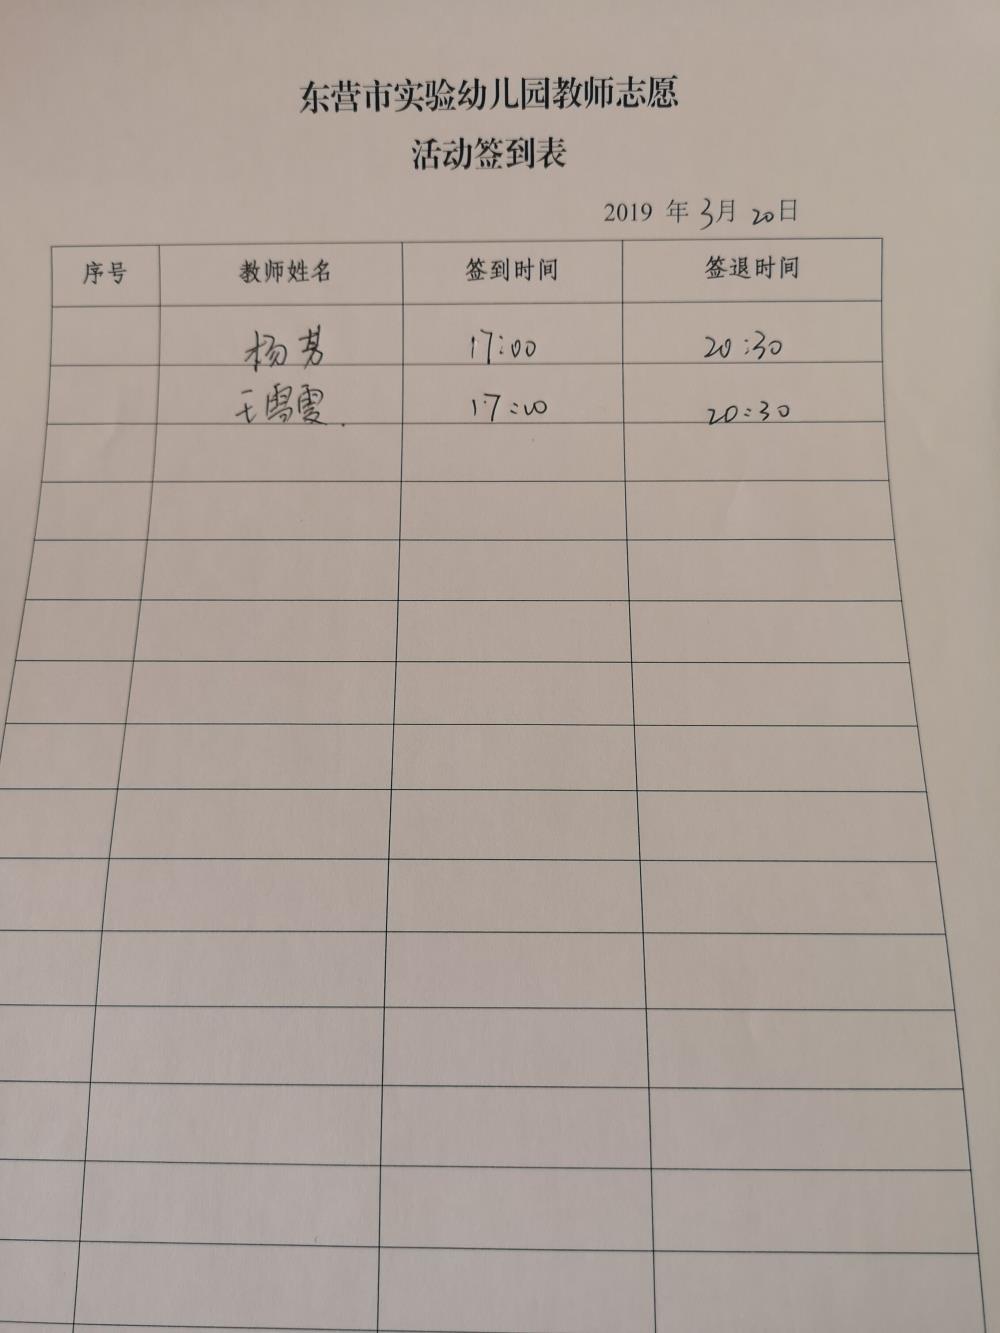 东营市实验幼儿园教师志愿
活动签到表
2019 年 3月 20日
序号 教师姓名 签到时间 签退时间
杨芳 17:00 20:30
王雪雯 17:00 20:30